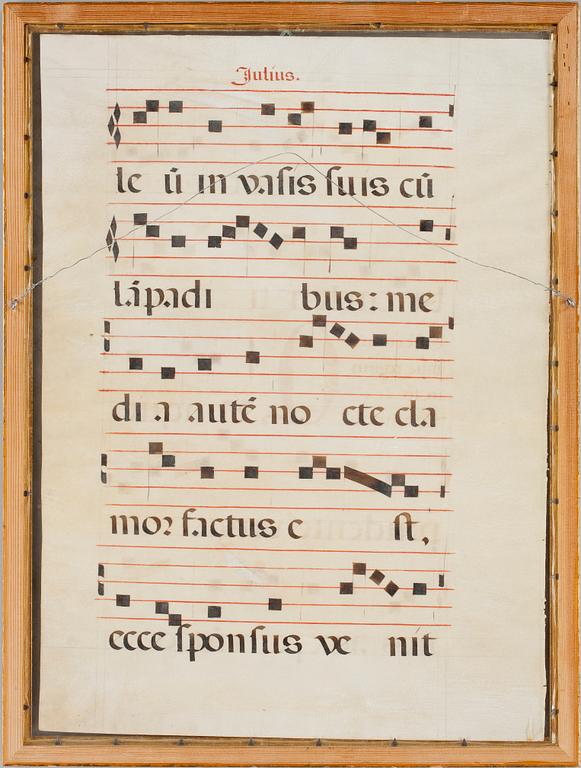 Julius.
le ū in vasis suis cū
lāpadi bus: me
di a autē no cte cla
mor factus e st,
ecce sponsus ve nit